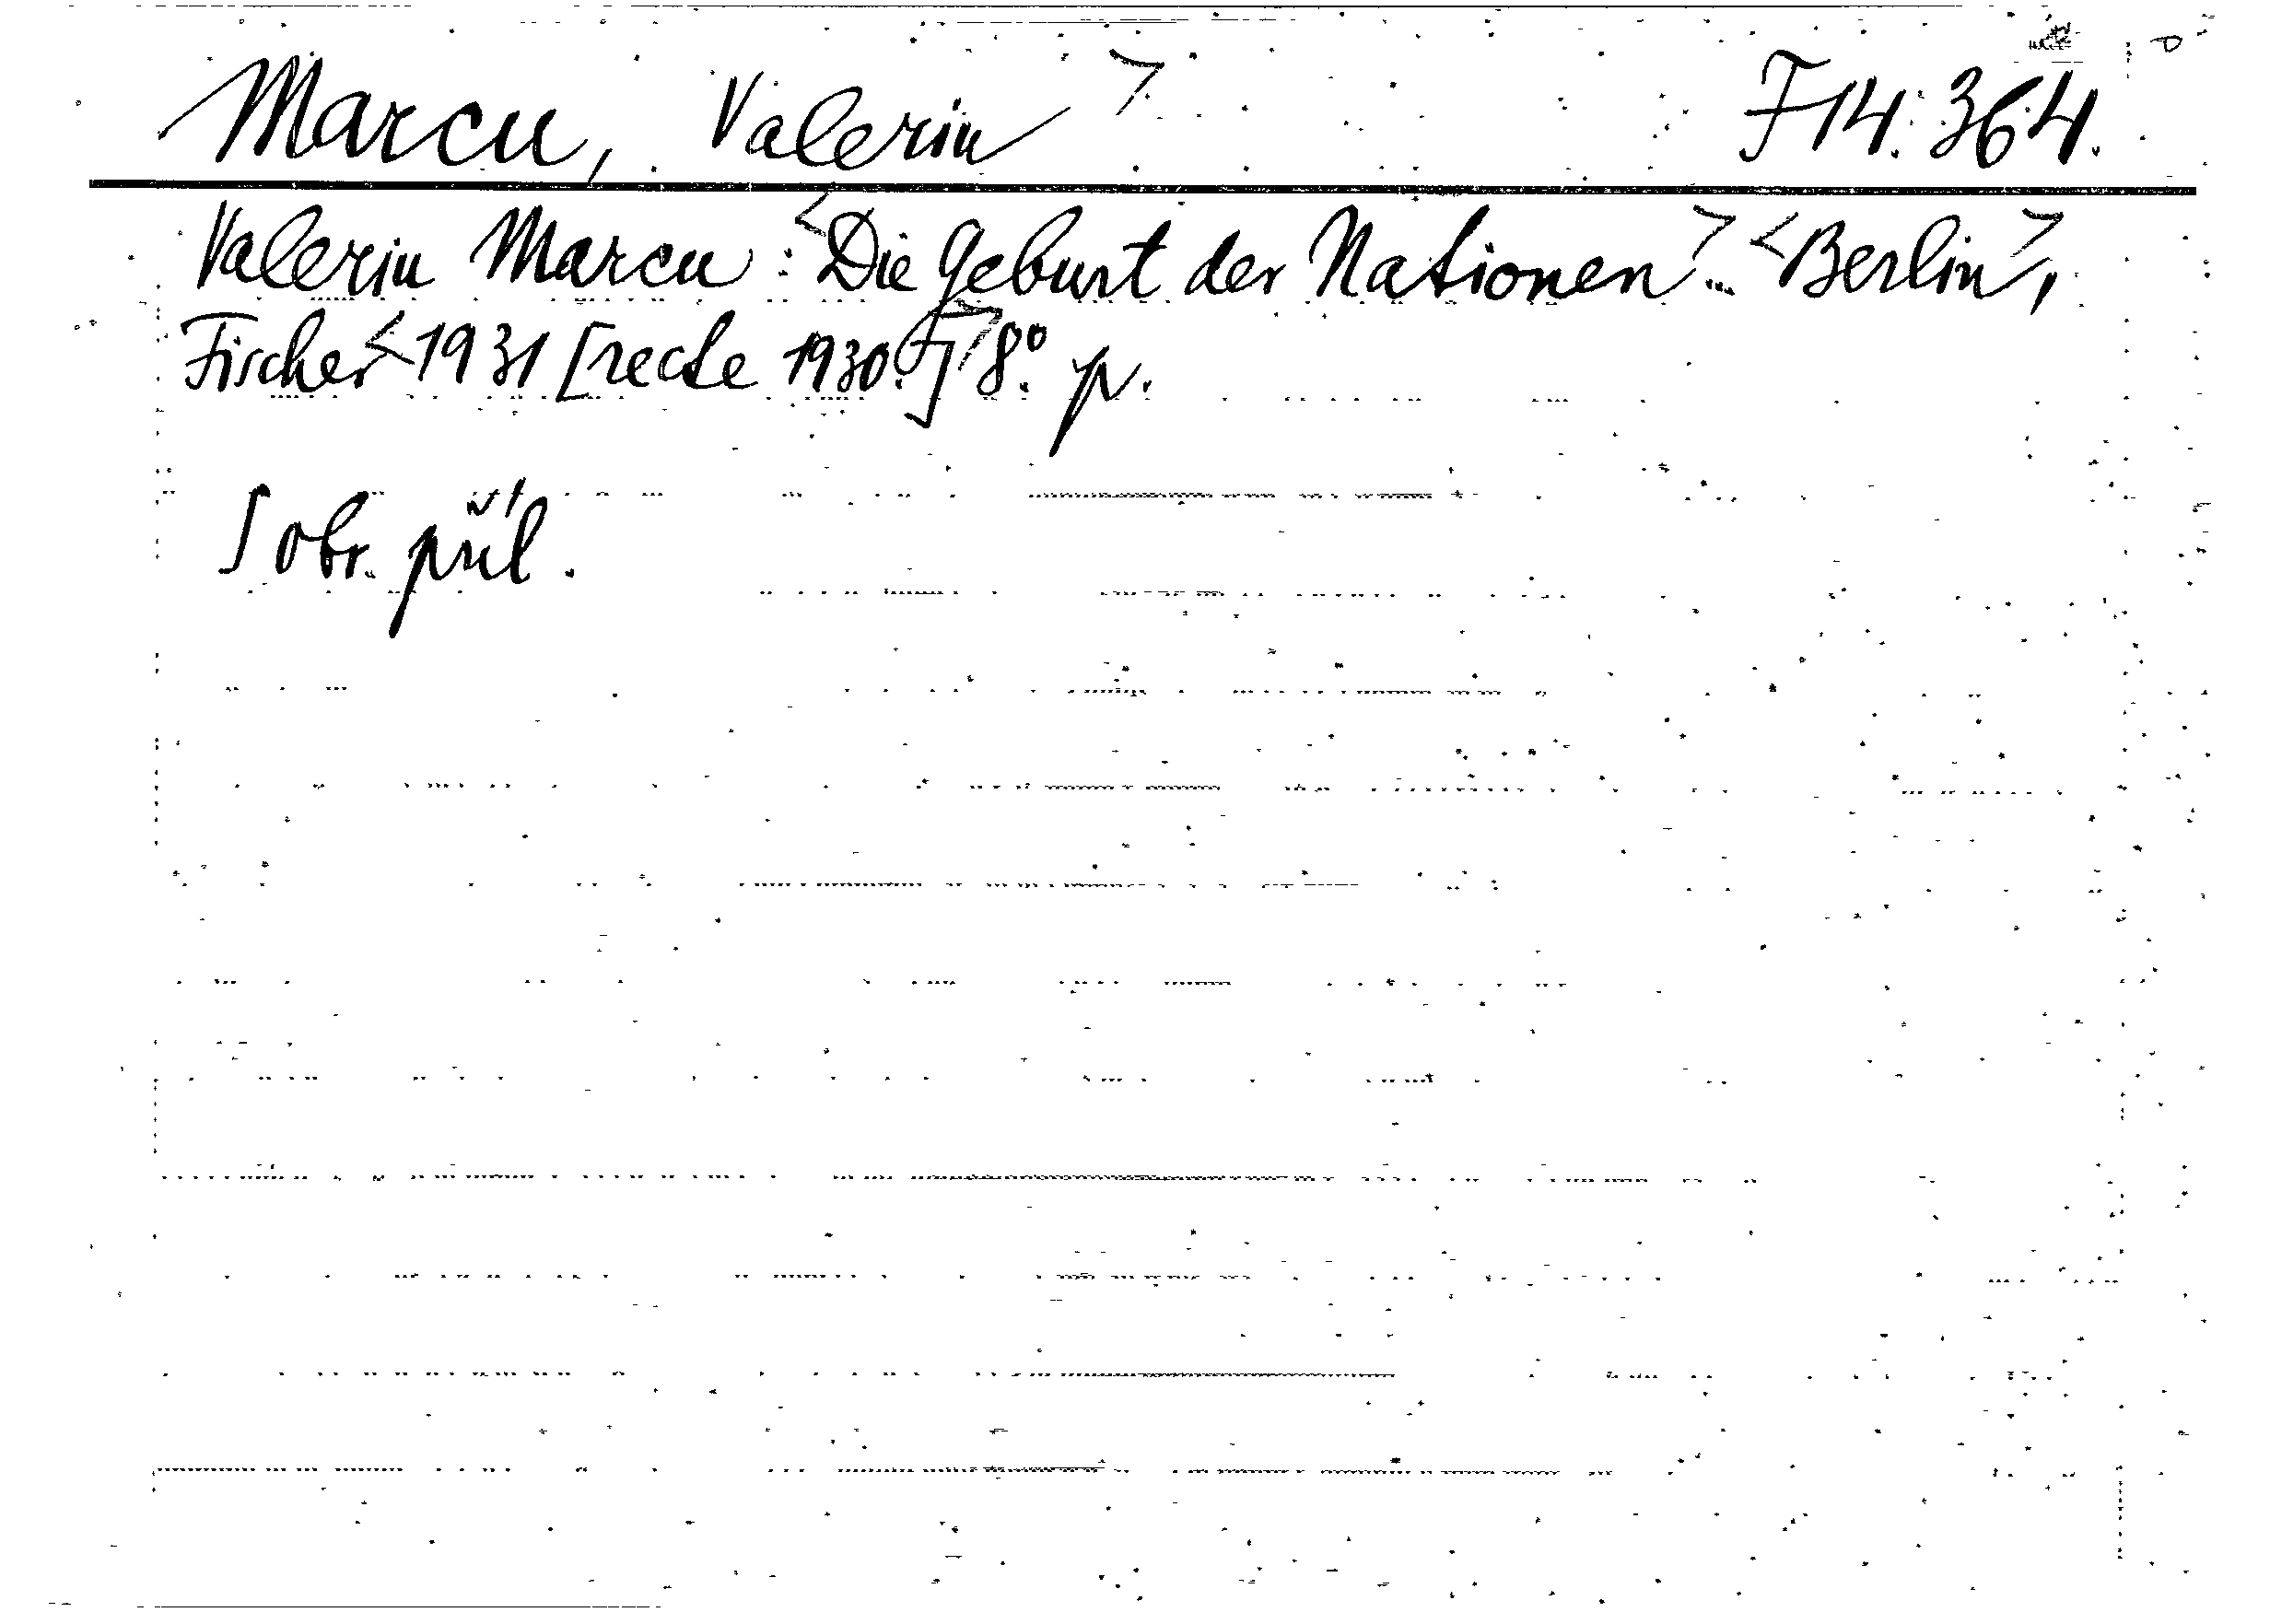 Marcu, Valeriu > F 14.364.
Valeriu Marcu: <Die Geburt der Nationen>. <Berlin>,
Fischer <1931 [recte 1930.]> 8°. p.
S obr. příl.